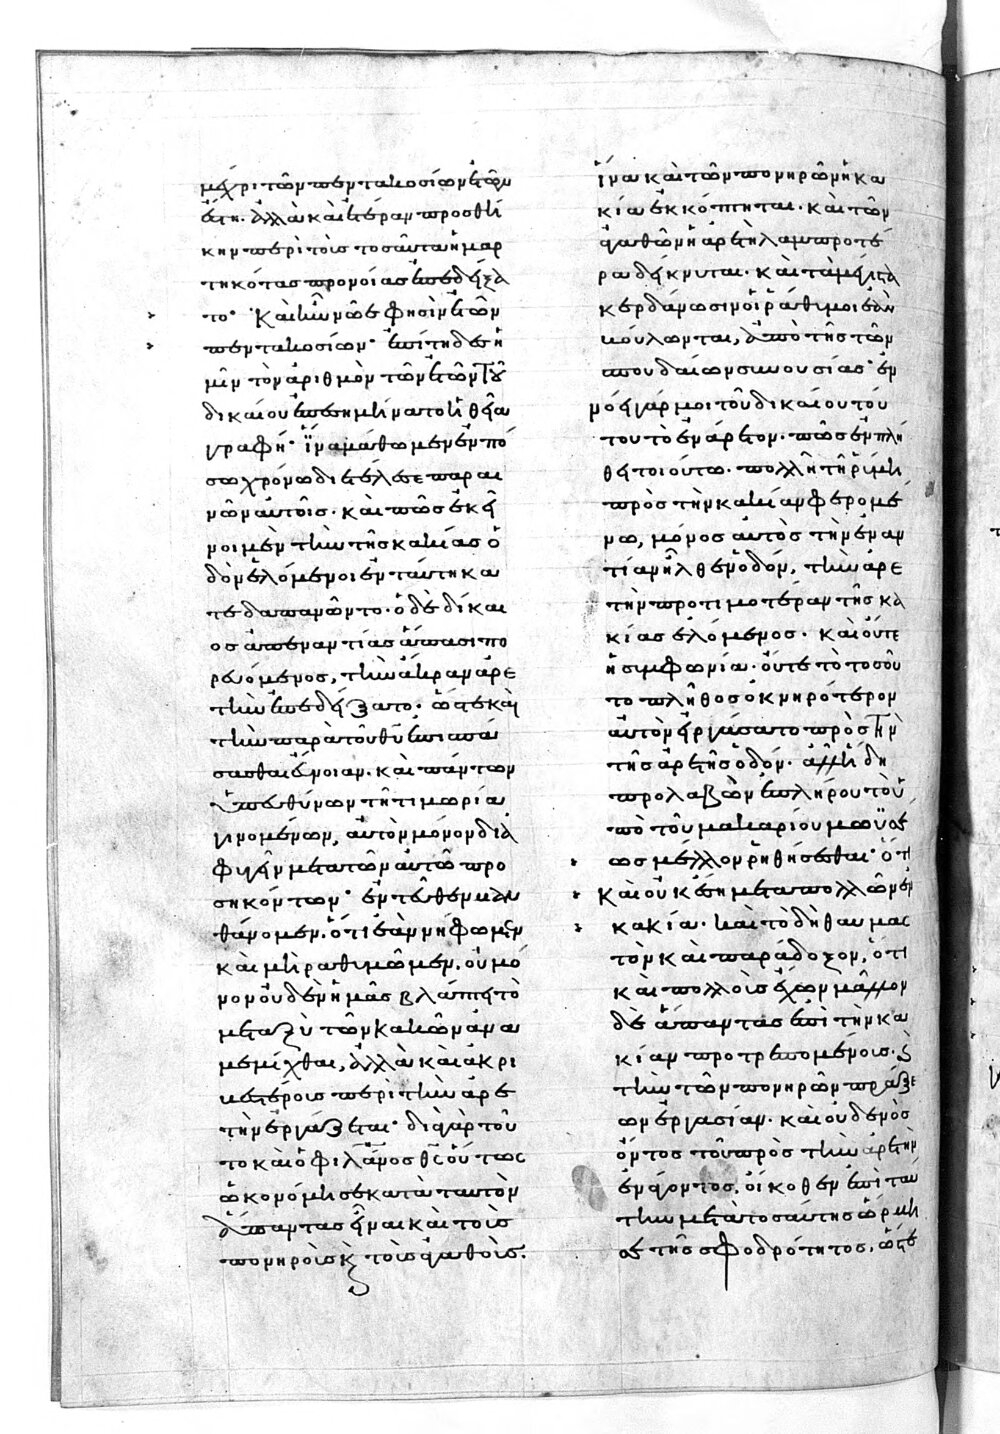 μέχρι τῶν πεντακοσίων ἐτῶν
ἔτη. ἀλλὰ καὶ ἑτέραν προσθή
κην περὶ τοὺς τοσαῦτα ἡμαρ
τηκότας προνοίας ἐπεδείξα
το· Καὶ ἦν νῶε φησὶν ἐτῶν
πεντακοσίων· ἐπίτηδες ἡ
μῖν τὸν ἀριθμὸν τῶν ἐτῶν τοῦ
δικαίου ἐπεσημήνατο ἡ θεία
γραφή· ἵνα μάθωμεν ἐν πό
σω χρόνω διετέλεσε παραι
νῶν αὐτοῖς· καὶ πῶς ἐκεῖ
νοι μὲν τὴν τῆς κακίας ὁ
δὸν ἑλόμενοι ἐν ταύτη κα
τεδαπανῶντο· ὁ δὲ δίκαι
ος ἀπεναντίας ἅπασι πο
ρευόμενος, τὴν ἄκραν ἀρε
τὴν ἐπεδείξατο· ὥστε καὶ
τὴν παρὰ τοῦ θυ ἐπισπά
σασθαι εὔνοιαν· καὶ πάντων
ὑπευθύνων τῆ τιμωρία
γινομένων, αὐτὸν μόνον δια
φυγεῖν μετὰ τῶν αὐτῶ προ
σηκόντων· ἐντεῦθεν μαν
θάνομεν, ὅτι ἐὰν νήφωμεν
καὶ μὴ ραθυμῶμεν, οὐ μό
νον οὐδὲν ἡμᾶς βλάπτει τὸ
μεταξὺ τῶν κακῶν ἀνα
μεμίχθαι, ἀλλὰ καὶ ἀκρι
βεστέρους περὶ τὴν ἀρε
τὴν ἐργάζεται· διὰ γὰρ τοῦ
το καὶ ὁ φιλανος θς οὕτως
ὠκονόμησε κατὰ ταυτὸν
ἅπαντας εἶναι καὶ τοὺς
πονηροὺς κ τοὺς ἀγαθοὺς.
ἵνα καὶ τῶν πονηρῶν ἡ κα
κία ἐκκόπτηται· καὶ τῶν
ἀγαθῶν ἡ ἀρετὴ λαμπροτέ
ρα δείκνυται· καὶ τὰ μέγιστα
κερδάνωσιν οἱ ῥάθυμοι ἐὰν
βούλωνται, ἀπὸ τῆς τῶν
σπουδαίων συνουσίας· ἐν
νόει γάρ μοι τοῦ δικαίου τού
του τὸ ἐνάρετον· πῶς ἐν πλή
θει τοιούτω· πολλῆ τῆ ῥύμη
πρὸς τὴν κακίαν φερομέ
νω, μόνος αὐτὸς τὴν ἐναν
τίαν ἦλθεν ὁδόν, τὴν ἀρε
τὴν προτιμοτέραν τῆς κα
κίας ἑλόμενος· καὶ οὔτε
ἡ συμφωνία· οὔτε τὸ τοσοῦ
το πλῆθος ὀκνηρότερον
αὐτὸν εἰργάσατο πρὸς τὴν
τῆς ἀρετῆς ὁδόν· ἀλλ' ἤδη
προλαβὼν ἐπλήρου τὸ ὑ
πὸ τοῦ μακαρίου μωϋσέ
ως μέλλον ῥηθήσεσθαι· ὅτι
καὶ οὐκ ἔση μετὰ πολλῶν ἐν
κακία· καὶ τὸ δὴ θαυμας
τὸν καὶ παράδοξον, ὅτι
καὶ πολλοὺς ἔχων μᾶλλον
δὲ ἅπαντας ἐπὶ τὴν κα
κίαν προτρεπομένους· κ
τὴν τῶν πονηρῶν πράξε
ων ἐργασίαν· καὶ οὐδενὸς
ὄντος τοῦ πρὸς τὴν ἀρετὴν
ἐνάγοντος, οἴκοθεν ἐπὶ ταύ
την μετὰ τοσαύτης ὥρμη
σε τῆς σφοδρότητος, ὥστε